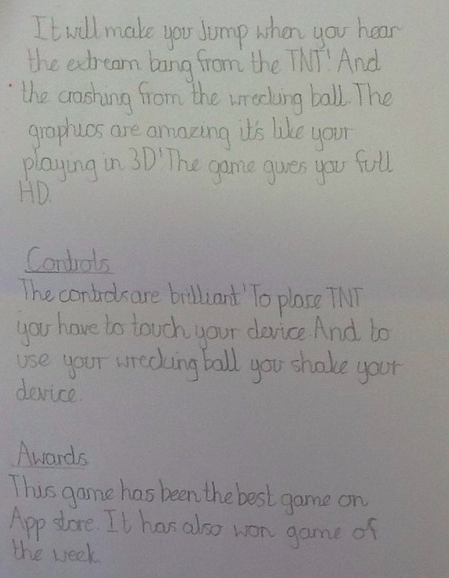 It will make you Jump when you hear
the extream bang from the TNT! And
the crashing from the wrecking ball. The
graphics are amazing it's like your
playing in 3D! The game gives you full
HD.
Controls
The controls are brilliant! To place TNT
you have to touch your device And to
use your wrecking ball you shake your
device.
Awards
This game has been the best game on
App store. It has also won game of
the week.